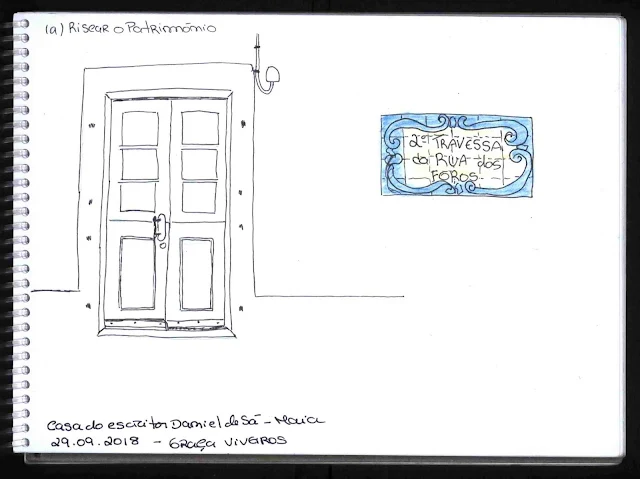 (a) Riscar o Património
2ª TRAVESSA
da RUA dos
FOROS
Casa do escritor Daniel de Sá - Maia
29.09.2018 - Graça Viveiros